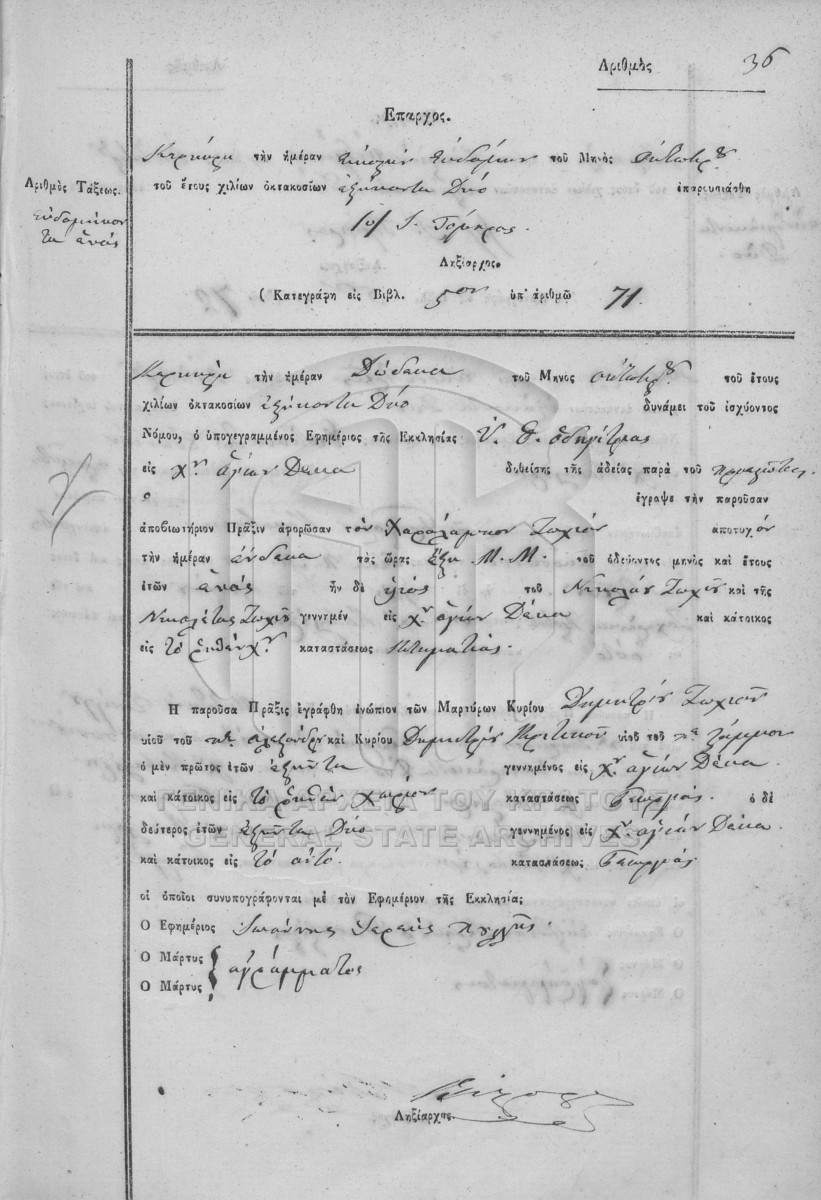 Ἀριθμὸς 36
Ἔπαρχος.
Κερκύρᾳ τὴν ἡμέραν εἰκοστὴν ἑβδόμην τοῦ Μηνὸς Ὀκτωβρ.
Ἀριθμὸς Τάξεως. τοῦ ἔτους χιλίων ὀκτακοσίων ἑξήκοντα Δύο ἐπαρουσιάσθη
ἑβδομήκον
τα ἕνας
Ληξίαρχος.
(Κατεγράφη εἰς Βιβλ. 5ον ὑπ' ἀριθμῷ 71.
Κερκύρᾳ τὴν ἡμέραν Δώδεκα τοῦ Μηνος Ὀκτωβρ. τοῦ ἔτους
χιλίων ὀκτακοσίων ἑξήκοντα Δύο δυνάμει τοῦ ἰσχύοντος
Νόμου, ὁ ὑπογεγραμμένος Ἐφημέριος τῆς Ἐκκλησίας Ὑ. Θ. Ὁδηγίτριας
εἰς χν ἁγίων Δέκα δοθείσης τῆς ἀδείας παρὰ τοῦ
ο ἔγραψε τὴν παροῦσαν
ἀποβιωτήριον Πρᾶξιν ἀφορῶσαν τὸν Χαράλαμπον Ζωχιὸν αποτυχόν
τὴν ἡμέραν ἕνδεκα τὰς ὥρας ἕξη Μ.Μ. τοῦ ὁδεύοντος μηνὸς καὶ ἔτους
ἐτῶν ἑνὸς ἦν δὲ υἱὸς τοῦ Νικολάου Ζωχιοῦ καὶ τῆς
Νικολέτας Ζωχιοῦ γεννημέν εἰς χν ἁγίων Δέκα καὶ κάτοικος
εἰς τὸ ῥηθὲν χν καταστάσεως Κτηματίας.
Ἡ παροῦσα Πρᾶξις ἐγράφθη ἐνώπιον τῶν Μαρτύρων Κυρίου Δημητρίου Ζωχιοῦ
υἱοῦ τοῦ Ἀλεξάνδρου καὶ Κυρίου Δημητρίου Κριτικοῦ υἱοῦ τοῦ
ὁ μὲν πρῶτος ἐτῶν ἑξῆντα γεννημένος εἰς χν ἁγίων Δέκα.
καὶ κάτοικος εἰς τὸ ῥηθὲν χωρίον καταστάσεως Γεωργός. ὁ δὲ
δεύτερος ἐτῶν ἑξῆντα Δύο γεννημένος εἰς χν ἁγίων Δέκα.
καὶ κάτοικος εἰς τὸ αὐτό. καταστάσεως Γεωργός
οἱ ὁποῖοι συνυπογράφονται μὲ τὸν Ἐφημέριον τῆς Ἐκκλησίας
Ὁ Ἐφημέριος Ἰωάννης Ἱερεὺς
Ὁ Μάρτυς
ἀγράμματοι
Ὁ Μάρτυς
Ληξίαρχος.
ΓΕΝΙΚΑ ΑΡΧΕΙΑ ΤΟΥ ΚΡΑΤΟΥΣ
GENERAL STATE ARCHIVES